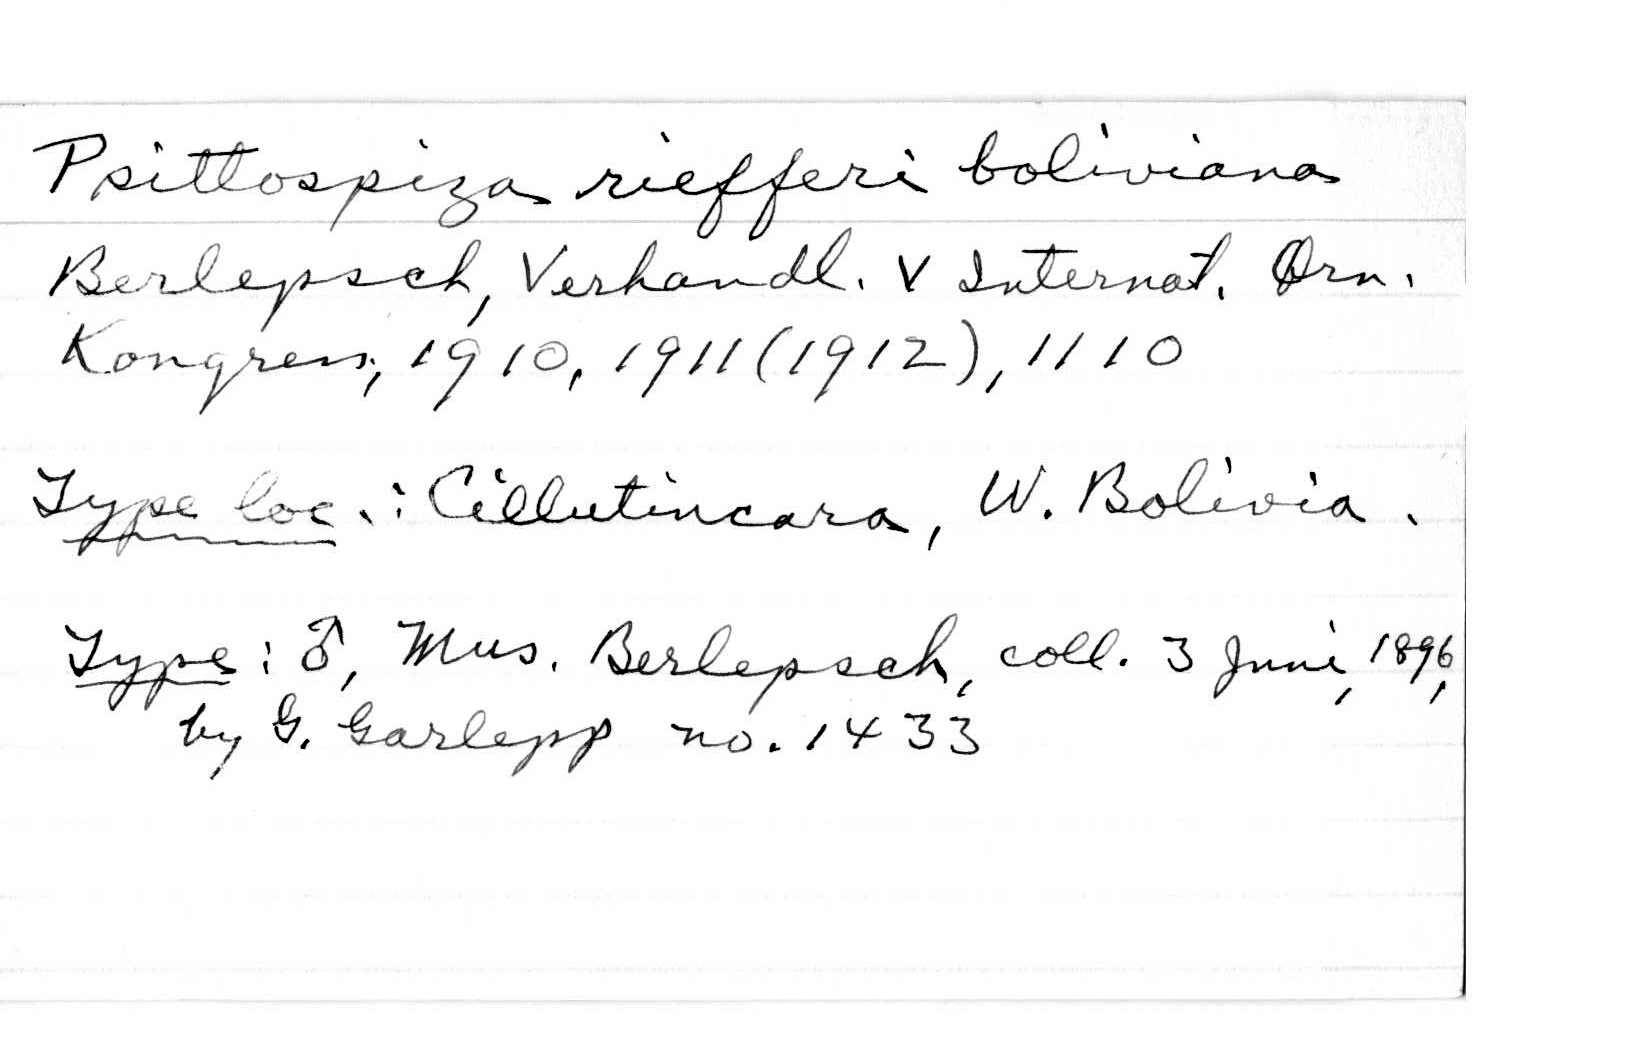 Psittospiza riefferi boliviana
Berlepsch, Verhandl. V Internat. Orn.
Kongress, 1910, 1911 (1912), 1110
Type loc.: Cillutincara, W. Bolivia.
Type: ♂, Mus. Berlepsch, coll. 3 Juni, 1896,
by G. Garlepp no. 1433